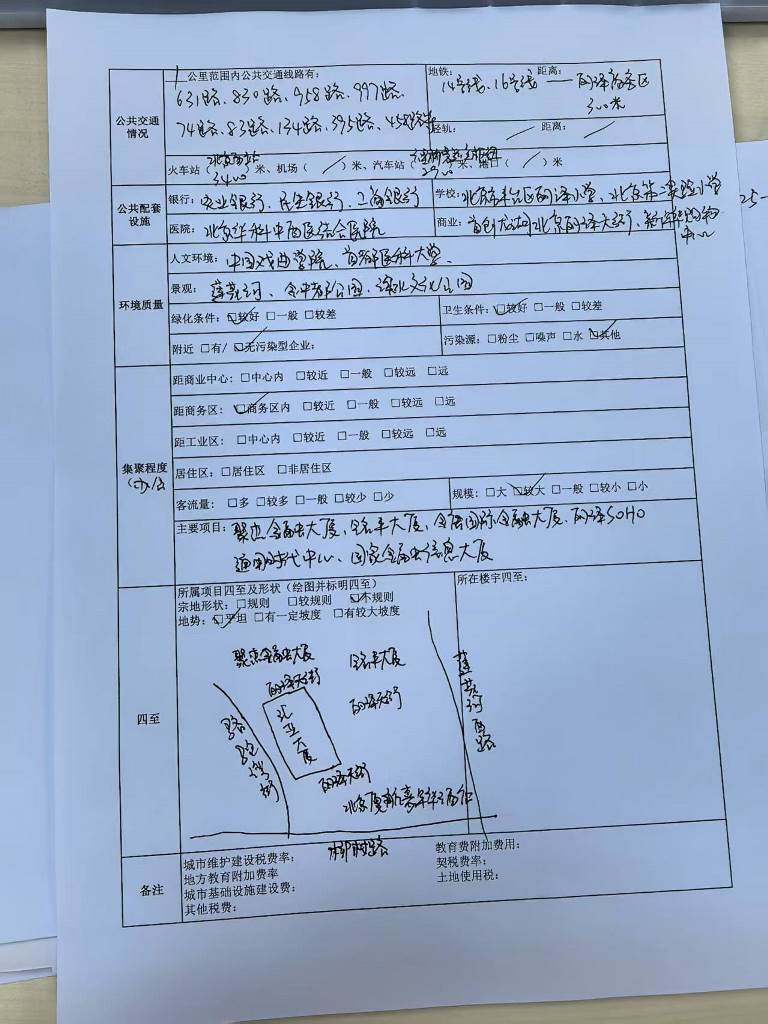 1公里范围内公共交通线路有：
地铁： 距离：
631路、830路、958路、997路、
14号线、16号线 —— 丽泽商务区
300米
公共交通情况
74路、83路、134路、395路、458路等
轻轨： ／ 距离： ／
北京西站
火车站（3400）米、机场（／）米、汽车站（2900）米、港口（／）米
公共配套设施
银行：农业银行、民生银行、工商银行
学校：北京市丰台区丽泽小学、北京第二实验小学
医院：北京华科中西医结合医院
商业：首创龙湖北京丽泽天街、
中心
环境质量
人文环境：中国戏曲学院、首都医科大学、
景观：莲花河、金中都公园、绿化文化公园
绿化条件：☑较好 □一般 □较差
卫生条件：☑较好 □一般 □较差
附近 □有/☑无污染型企业：
污染源：□粉尘 □噪声 □水 ☑其他
集聚程度（办公
距商业中心：□中心内 □较近 □一般 □较远 □远
距商务区：☑商务区内 □较近 □一般 □较远 □远
距工业区：□中心内 □较近 □一般 □较远 □远
居住区：□居住区 □非居住区
客流量：□多 □较多 □一般 □较少 □少
规模：□大 ☑较大 □一般 □较小 □小
主要项目：聚杰金融大厦、铭丰大厦、金唐国际金融大厦、丽泽SOHO
通用时代中心、国家金融信息大厦
四至
所属项目四至及形状（绘图并标明四至）
所在楼宇四至：
宗地形状：□规则 □较规则 ☑不规则
地势：☑平坦 □有一定坡度 □有较大坡度
聚杰金融大厦
铭丰大厦
丽泽天街
丽泽天街
莲花河西路
骆驼湾街
北亚大厦
丽泽天街
北京
嘉年华酒店
柳村路
备注
城市维护建设税费率：
教育费附加费用：
地方教育附加费率
契税费率：
城市基础设施建设费：
土地使用税：
其他税费：
25-